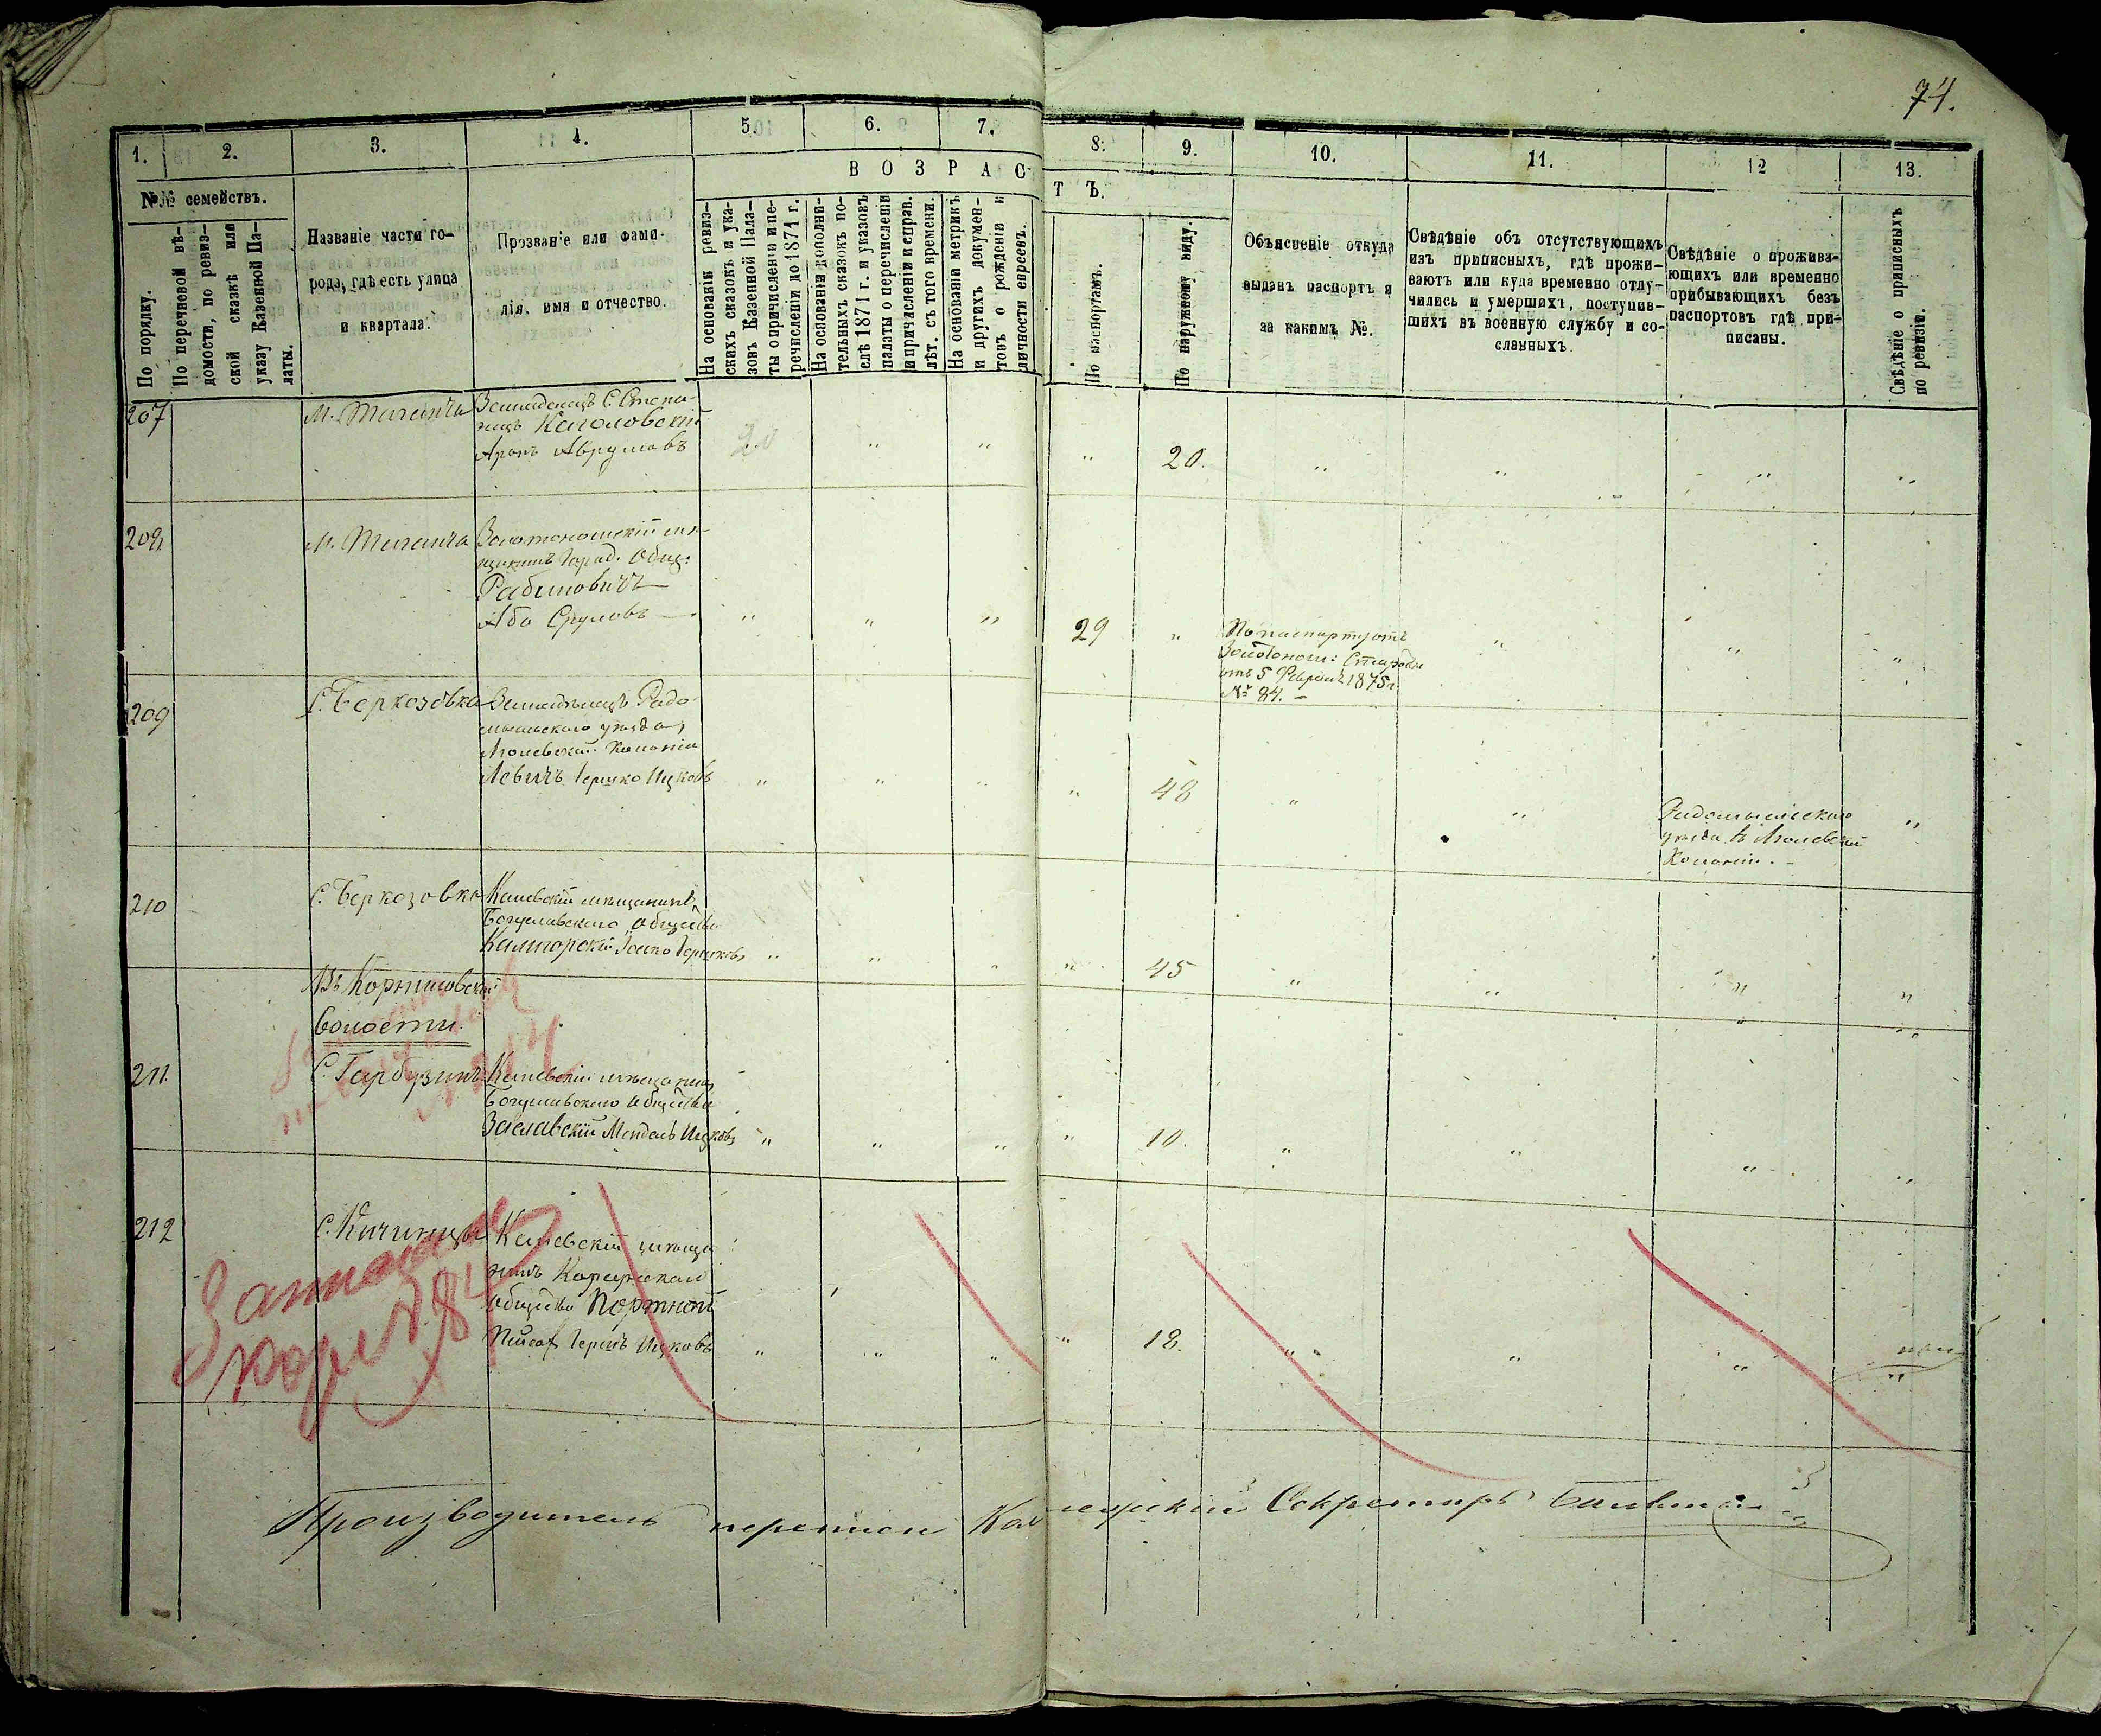 74.
1.
2.
3.
4.
5.
6.
7.
8.
9.
10.
11.
12
13.
№№ семействъ.
По порядку.
По перечневой вѣ-
домости, по ревиз-
ской сказкѣ или
указу Казенной Па-
латы.
Названіе части го-
рода, гдѣ есть улица
и квартала.
Прозваніе или фами-
лія, имя и отчество.
ВОЗРАСТЪ.
На основаніи ревиз-
скихъ сказокъ и ука-
зовъ Казенной Пала-
ты о причисленіи и пе-
речисленіи до 1871 г.
На основаніи дополни-
тельныхъ сказокъ по-
слѣ 1871 г. и указовъ
палаты о перечисленіи
и причисленіи и справ.
лѣт. съ того времени.
На основаніи метрикъ
и другихъ докумен-
товъ о рожденіи и
личности евреевъ.
По паспортамъ.
По наружному виду.
Объясненіе откуда
выданъ паспортъ и
за какимъ №.
Свѣдѣніе объ отсутствующихъ
изъ приписныхъ, гдѣ прожи-
ваютъ или куда временно отлу-
чились и умершихъ, поступив-
шихъ въ военную службу и со-
сланныхъ.
Свѣдѣніе о прожива-
ющихъ или временно
прибывающихъ безъ
паспортовъ гдѣ при-
писаны.
Свѣдѣніе о приписныхъ
по ревизіи.
207
М.
С. Степа-
нецъ
Аронъ Аврумовъ
20
" " " 20. " " " "
208
М.
Золотоношскій мѣ-
щанинъ Город. Общ:
Рабиновичъ
Аба Сруловъ
" " " 29 "
По паспорту отъ
Золотонош:
отъ 5 1875 г.
№ 84.
" " "
209
С. Беркозовка
Земледѣлецъ Радо-
мысльскаго уѣзда,
Колоніи
Левичъ Гершко Ицковъ
" " " " 48 " "
Радомысльскаго
уѣзда въ
Колоніи.
"
210
С. Беркозовка
Каневскій мѣщанинъ
Богуславскаго общества
Гершковъ
" " " " 45 " " " "
Въ Корниловской
волости
211.
С. Гарбузинъ
Каневскій мѣщанинъ
Богуславскаго общества
Заславскій Мендель Ицковъ
" " " " 10. " " " "
212
С. Кичинцы
Каневскій мѣща-
нинъ Корсунскаго
общества Портной
Герш Ицковъ
" " " " 18. " " " "
Производитель переписи Коллежскій Секретарь